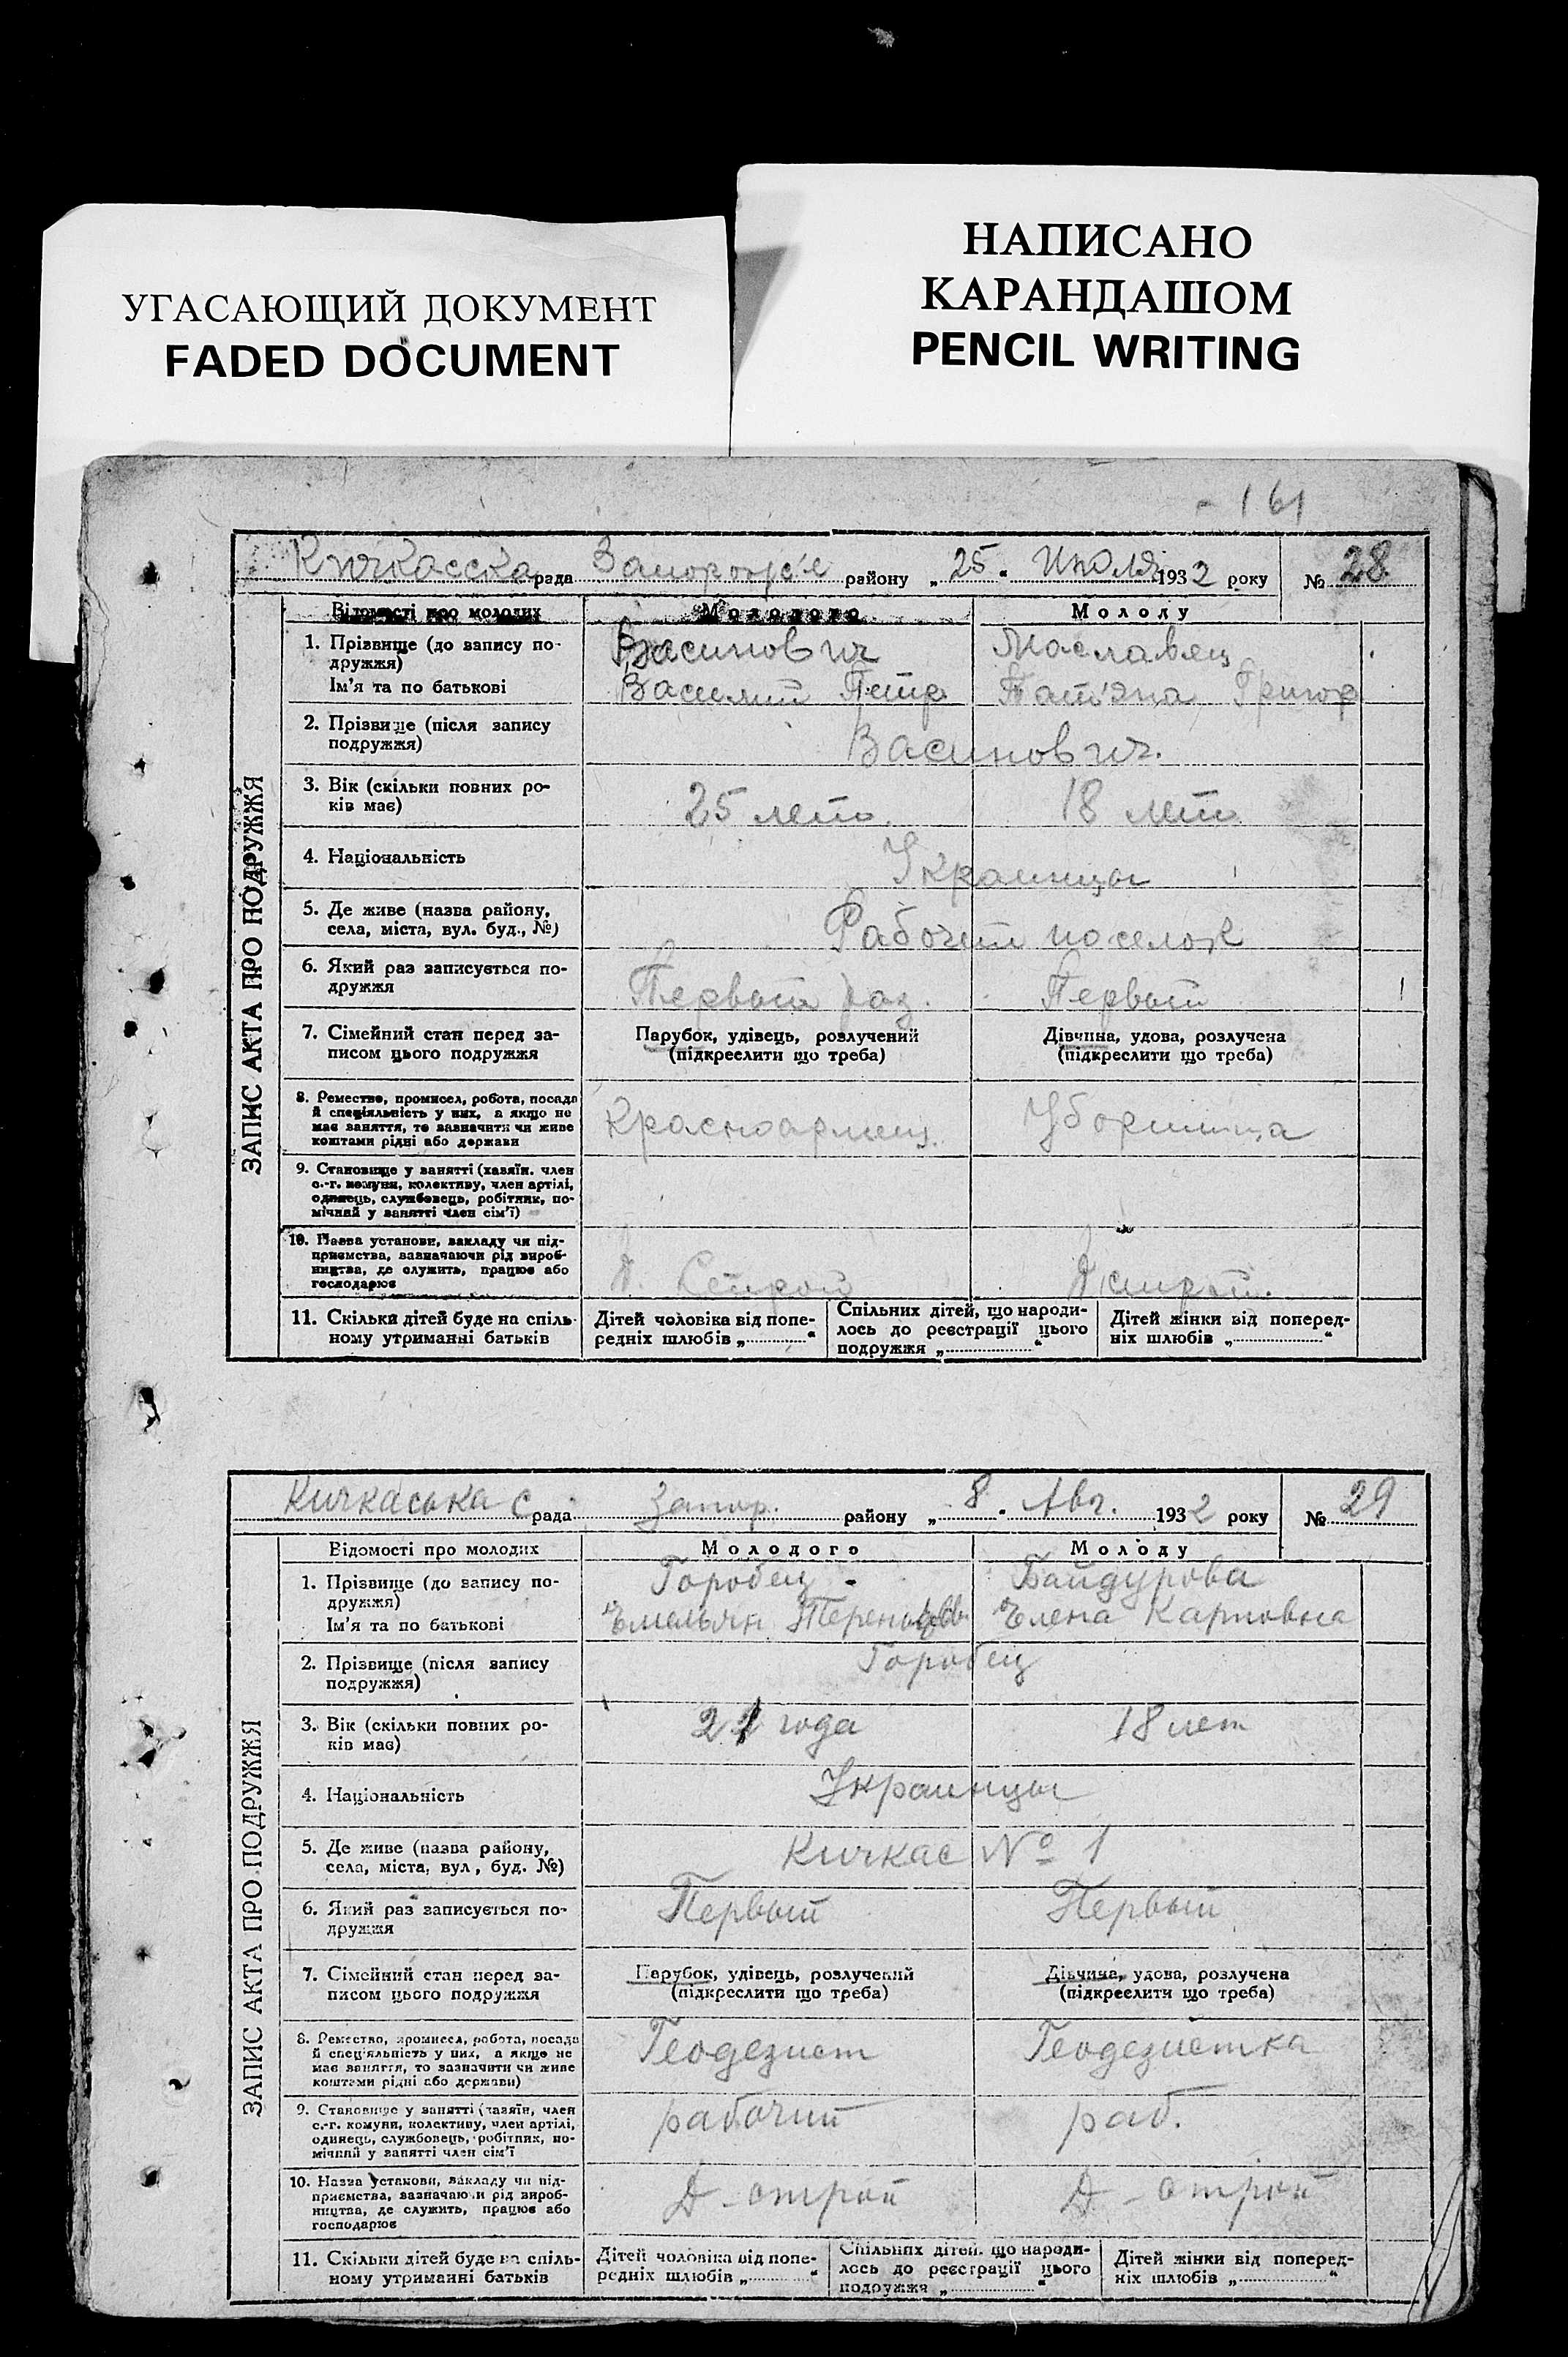 УГАСАЮЩИЙ ДОКУМЕНТ
FADED DOCUMENT
НАПИСАНО
КАРАНДАШОМ
PENCIL WRITING
161
Кичкасска рада Запорожье району „ 25 “ Июля 1932 року № 28
ЗАПИС АКТА ПРО ПОДРУЖЖЯ
Відомості про молодих Молодого Молоду
1. Прізвище (до запису по-
дружжя)
Васинович Маславец
Ім'я та по батькові Василий Петр Татьяна Григор
2. Прізвище (після запису
подружжя)
Васинович.
3. Вік (скільки повних ро-
ків має)
25 лет 18 лет
4. Національність Украинцы
5. Де живе (назва району,
села, міста, вул. буд., №)
Рабочий поселок
6. Який раз записується по-
дружжя
Первый раз. Первый
7. Сімейний стан перед за-
писом цього подружжя
Парубок, удівець, розлучений
(підкреслити що треба)
Дівчина, удова, розлучена
(підкреслити що треба)
8. Ремество, промисел, робота, посада
й спеціяльність у них, а якщо не
має заняття, то зазначити чи живе
коштами рідні або держави
Красноармеец. Уборщица
9. Становище у занятті (хазяїн, член
с.-г. комуни, колективу, член артілі,
одинець, службовець, робітник, по-
мічний у занятті член сім'ї)
10. Назва установи, закладу чи під-
приємства, зазначаючи рід вироб-
ництва, де служить, працює або
господарює
11. Скільки дітей буде на спіль-
ному утриманні батьків
Дітей чоловіка від попе-
редніх шлюбів „ “
Спільних дітей, що народи-
лось до реєстрації цього
подружжя „ “
Дітей жінки від поперед-
ніх шлюбів „ “
Кичкаська с рада Запор. району „ 8 “ Авг. 1932 року № 29
ЗАПИС АКТА ПРО ПОДРУЖЖЯ
Відомості про молодих Молодого Молоду
1. Прізвище (до запису по-
дружжя)
Горобец Байдурова
Ім'я та по батькові Емельян Елена Карповна
2. Прізвище (після запису
подружжя)
Горобец
3. Вік (скільки повних ро-
ків має)
21 года 18 лет
4. Національність Украинцы
5. Де живе (назва району,
села, міста, вул, буд. №)
Кичкас № 1
6. Який раз записується по-
дружжя
Первый Первый
7. Сімейний стан перед за-
писом цього подружжя
Парубок, удівець, розлучений
(підкреслити що треба)
Дівчина, удова, розлучена
(підкреслити що треба)
8. Ремество, промисел, робота, посада
й спеціяльність у них, а якщо не
має заняття, то зазначити чи живе
коштами рідні або держави)
Геодезист Геодезистка
9. Становище у занятті (хазяїн, член
с.-г. комуни, колективу, член артілі,
одинець, службовець, робітник, по-
мічний у занятті член сім'ї
рабочий раб.
10. Назва установи, закладу чи під-
приємства, зазначаючи рід вироб-
ництва, де служить, працює або
господарює
Д-строй Д-строй
11. Скільки дітей буде на спіль-
ному утриманні батьків
Дітей чоловіка від попе-
редніх шлюбів „ “
Спільних дітей, що народи-
лось до реєстрації цього
подружжя „ “
Дітей жінки від поперед-
ніх шлюбів „ “